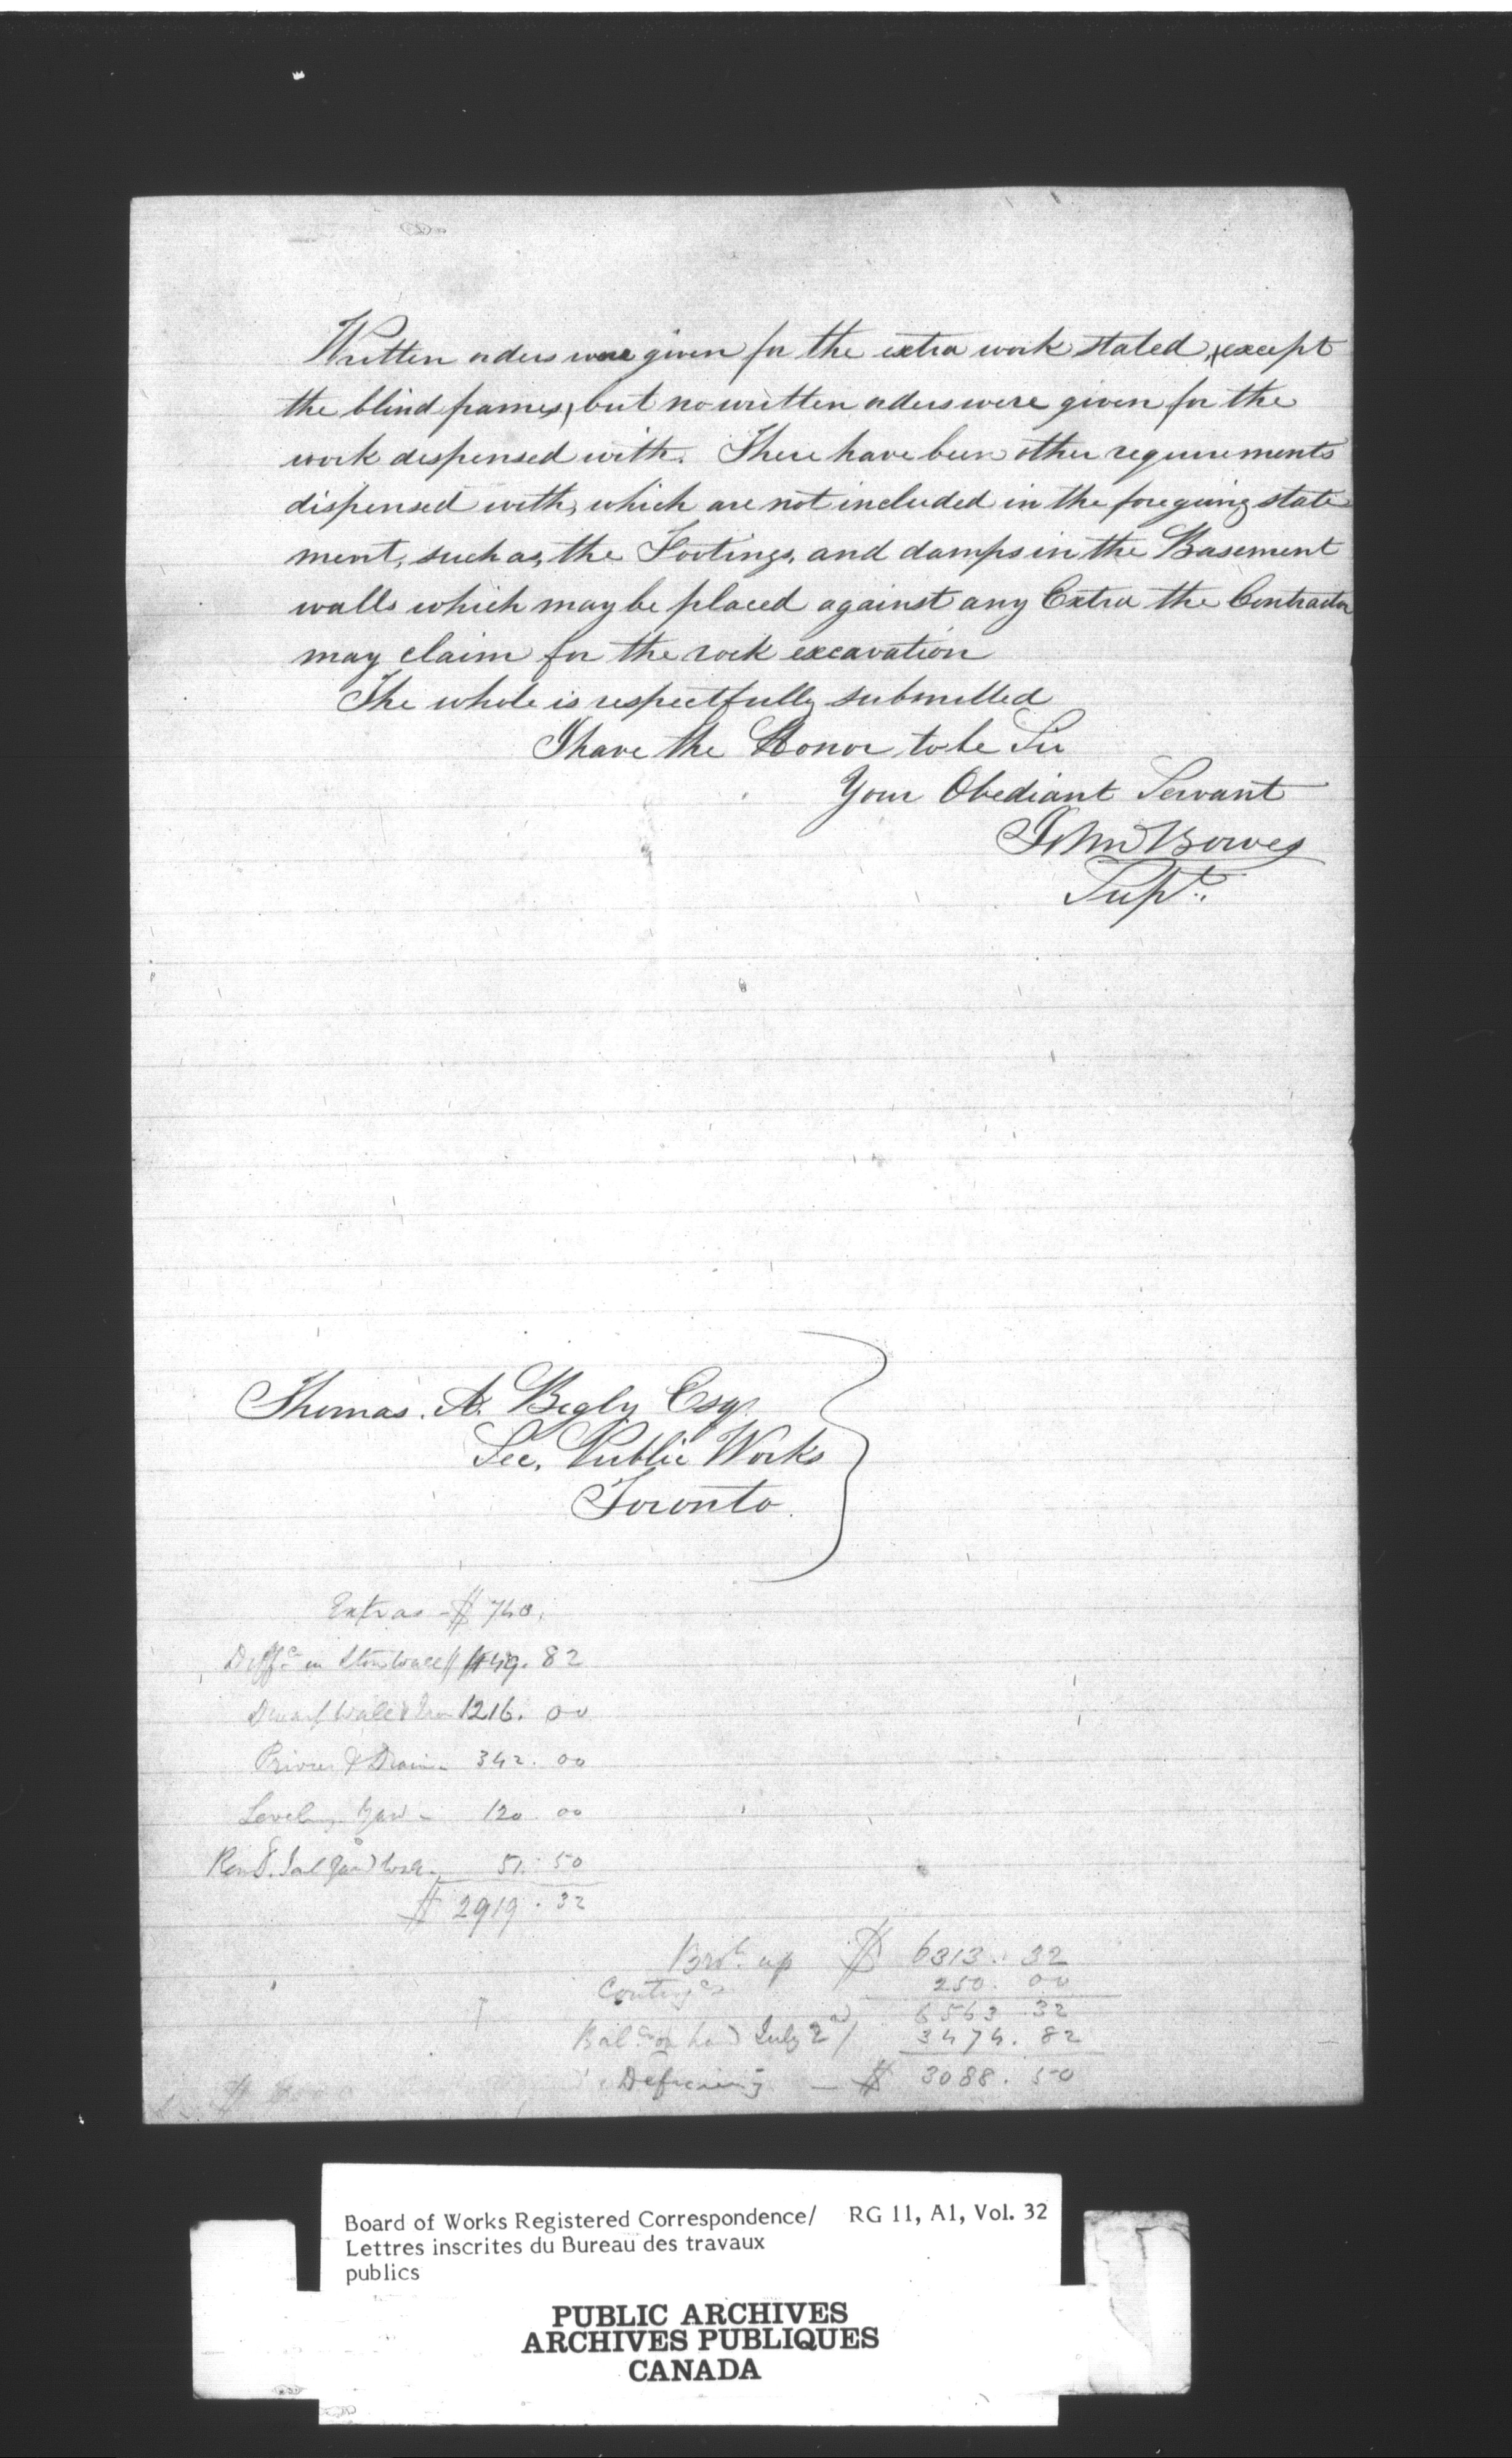 Written orders were given for the extra work stated, except
the blind frames, but no written orders were given for the
work dispensed with. There have been other requirements
dispensed with, which are not included in the foregoing state
ment, such as, the Footings, and damps in the Basement
walls which may be placed against any Extra the Contractor
may claim for the rock excavation
The whole is respectfully submitted
I have the Honor to be Sir
Your Obediant Servant
John Bowes
Supt.
Thomas. A. Begly Esqr.
Sec. Public Works
Toronto.
Extras - $ 740.
Diffce in Stone wall 449. 82
Dwarf Wall & Iron 1216. 00
Privies & Drain - 342. 00
Leveling Yard - 120 00
Jail Yard Wall - 51. 50
$ 2919. 32
Brot. up $ 6313. 32
Contingcs 250. 00
6563 32
Balce on hand July 2nd / 3474. 82
Deficiency - $ 3088. 50
Board of Works Registered Correspondence/ RG 11, A1, Vol. 32
Lettres inscrites du Bureau des travaux
publics
PUBLIC ARCHIVES
ARCHIVES PUBLIQUES
CANADA